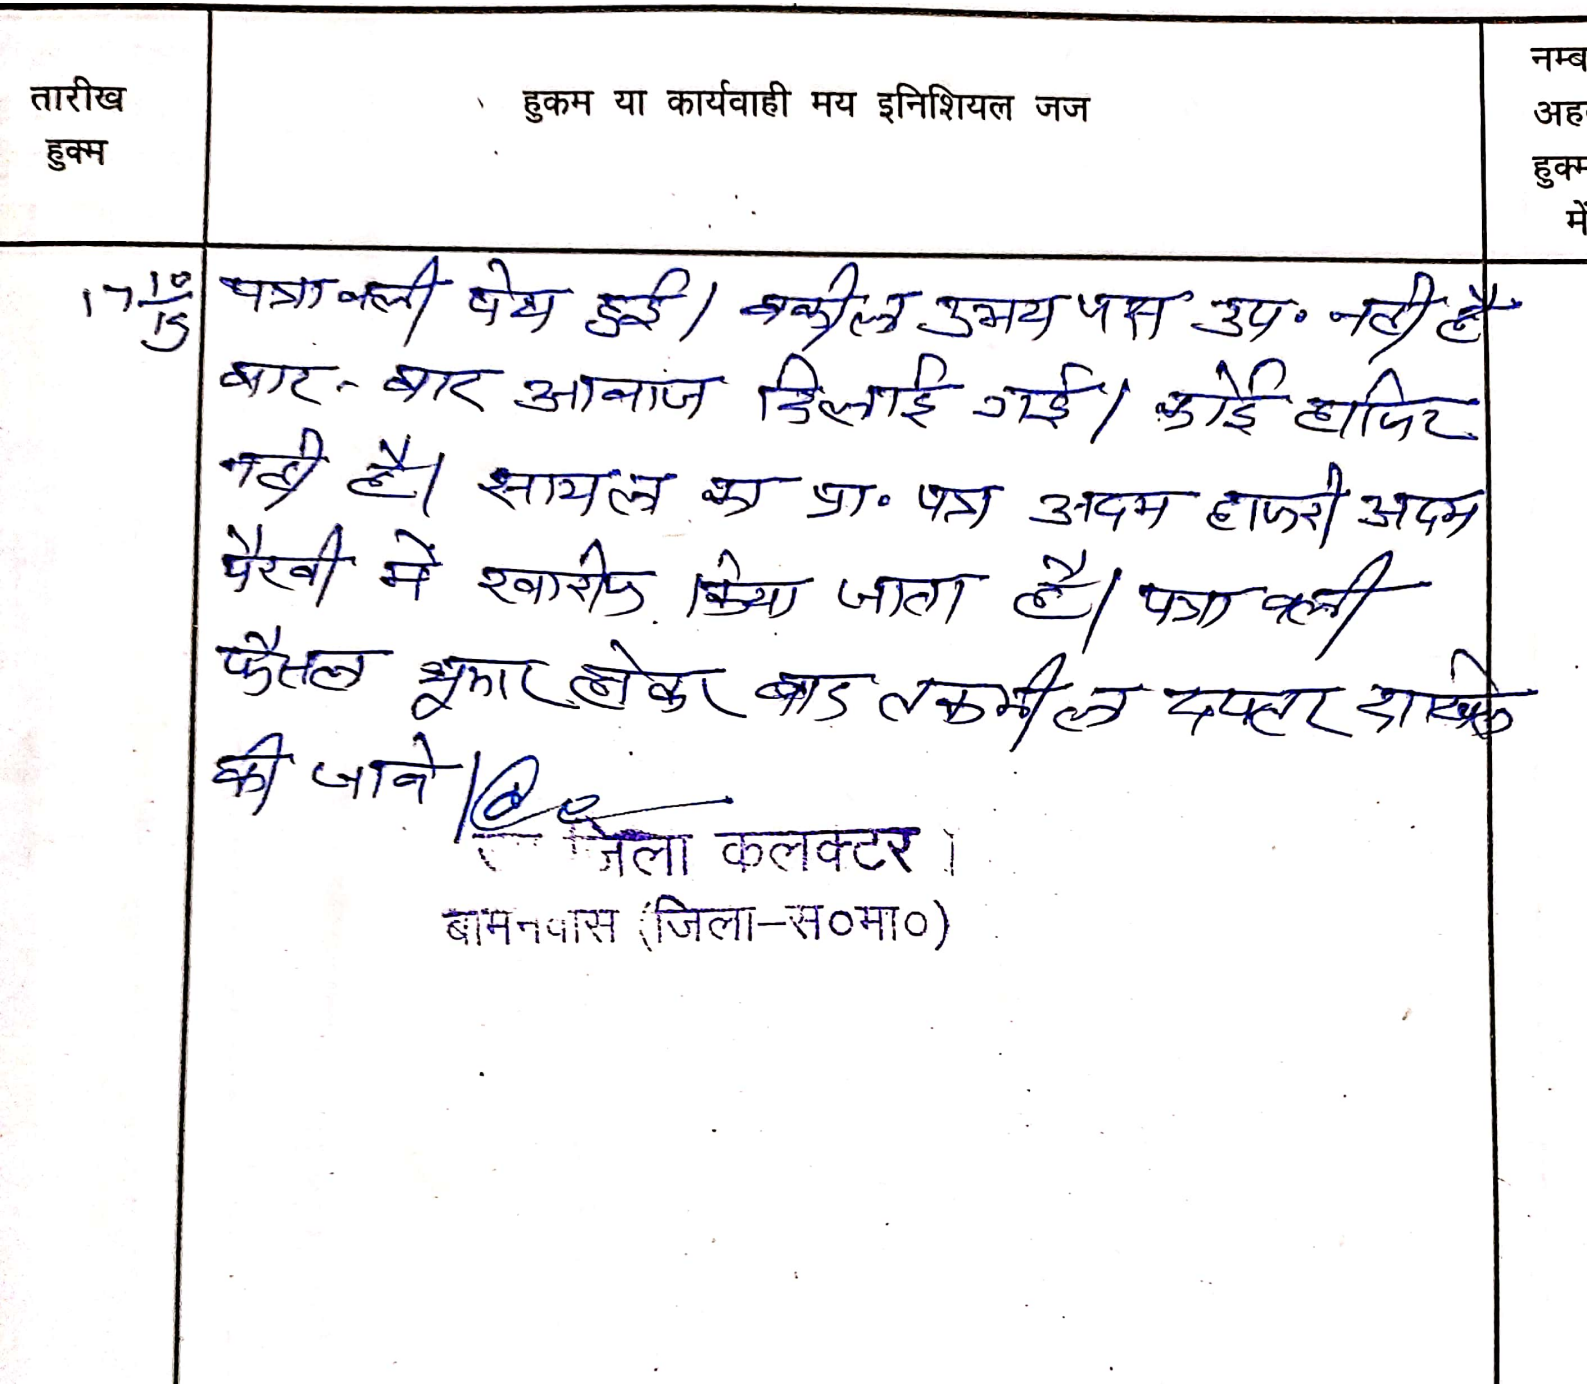 तारीख
हुक्म
हुकम या कार्यवाही मय इनिशियल जज
नम्ब
अह
हुक्म
में
17 10/15
पत्रावली पेश हुई। वकील उभय पक्ष उप. नही है
बार-बार आवाज दिलाई गई। कोई हाजिर
नही है। सायल का प्रा. पत्र अदम हाजरी अदम
पैरवी में खारीज किया जाता है। पत्रावली
फैसल शूमार होकर बाद तकमील दफ्तर दाखिल
की जावे।
जिला कलक्टर
बामनवास (जिला-स०मा०)